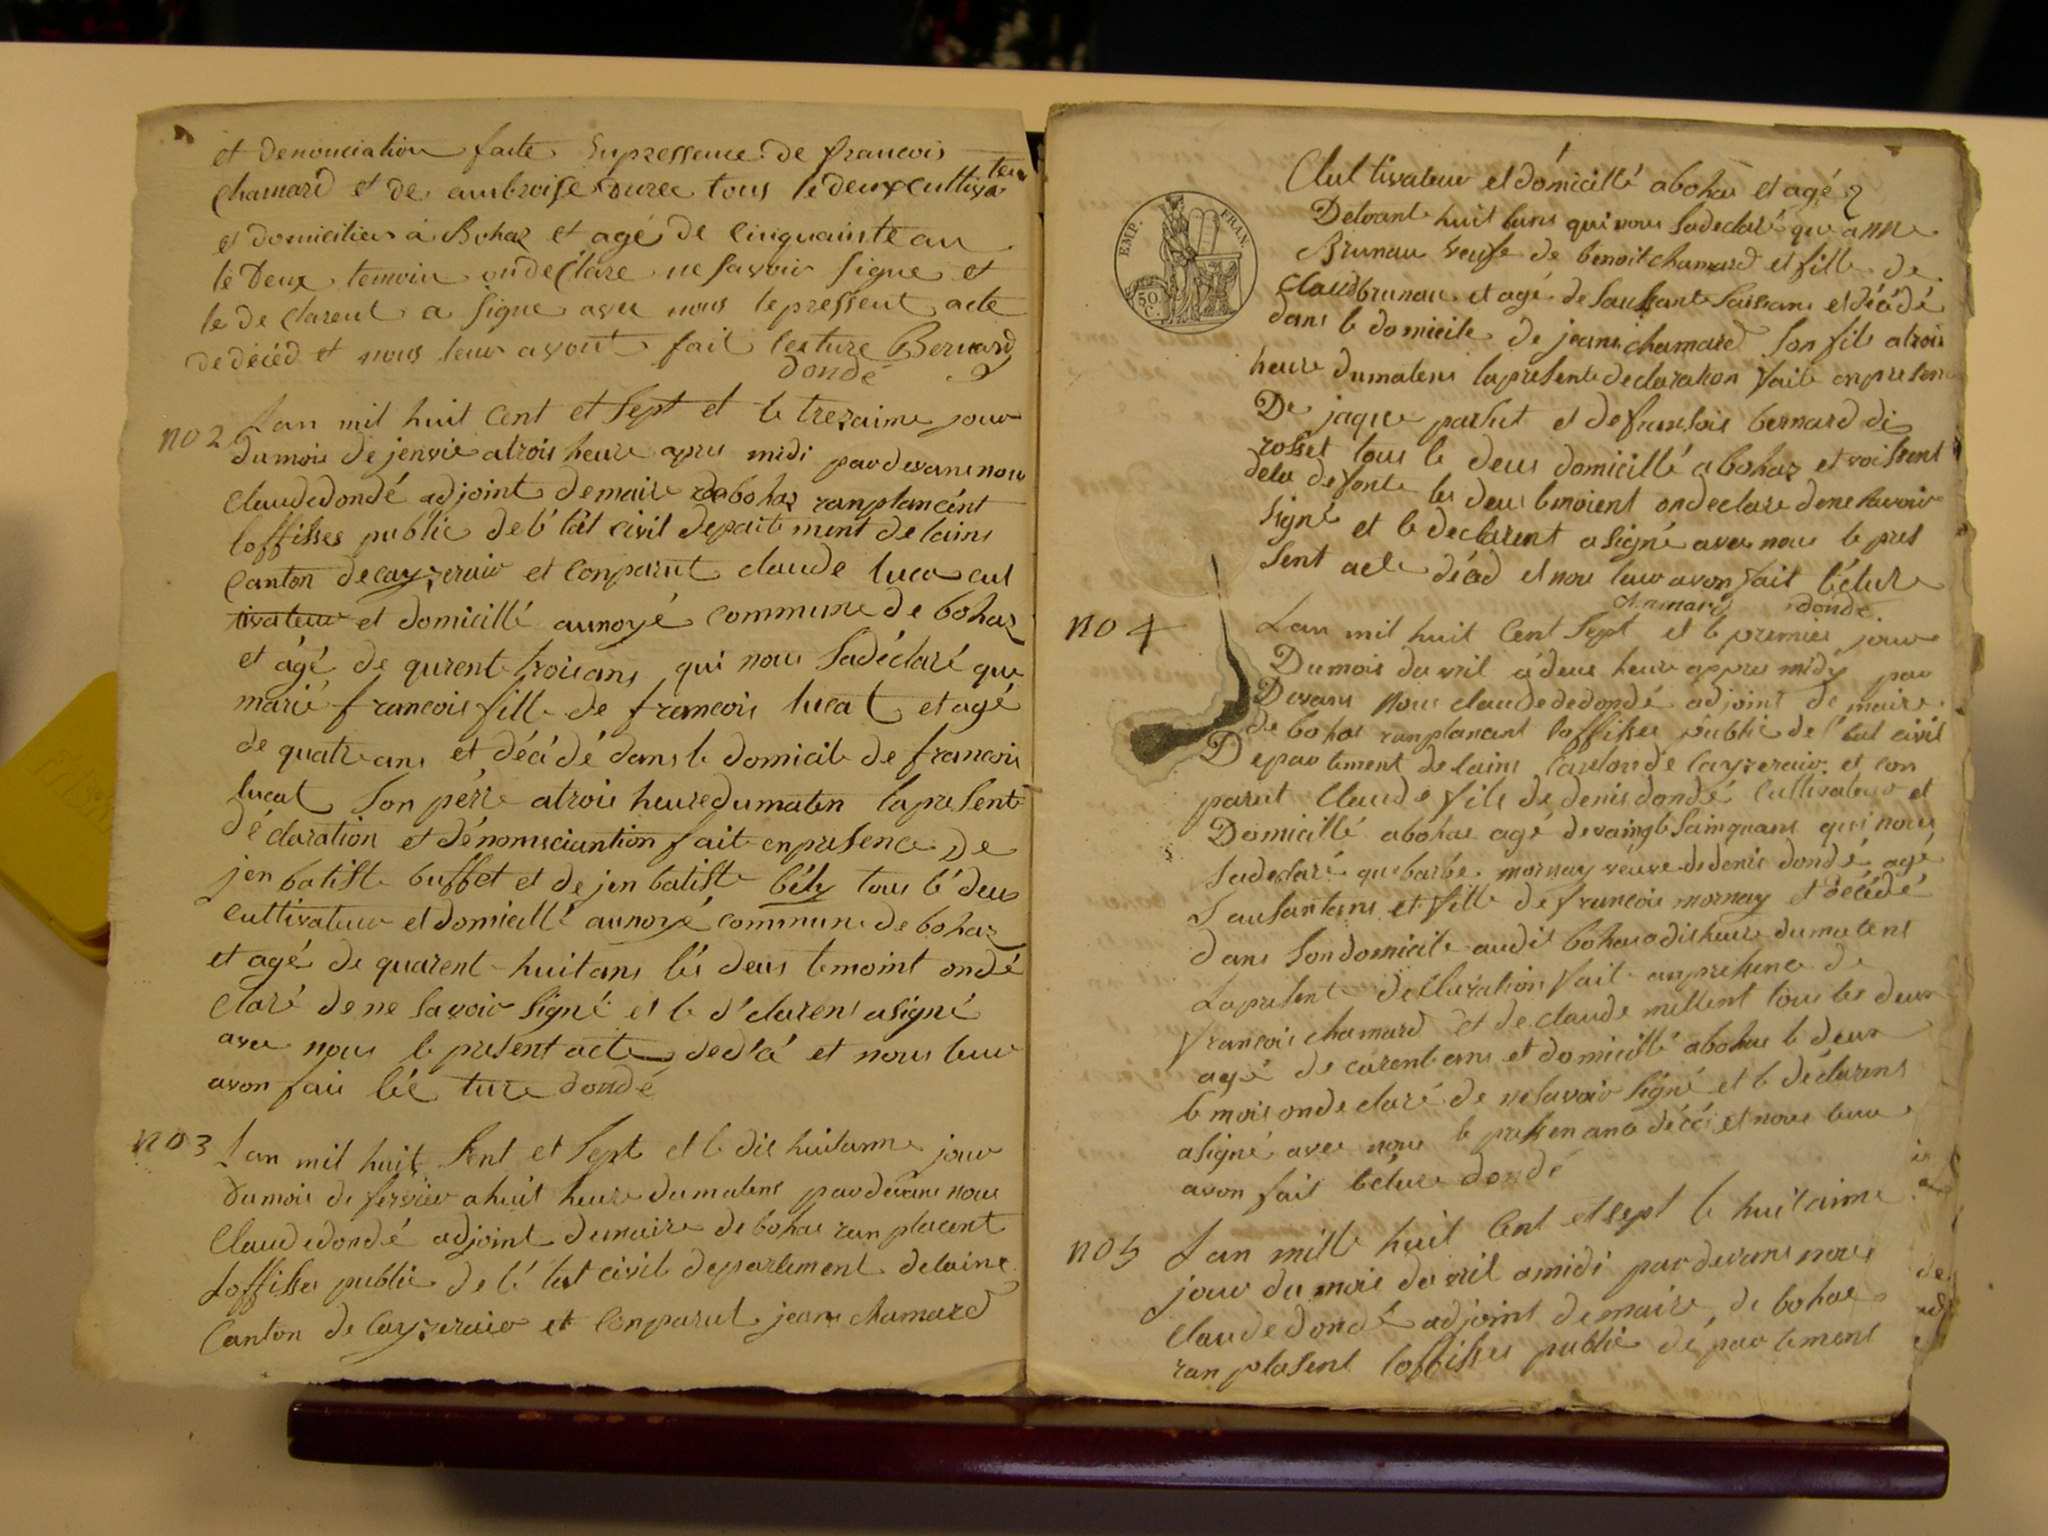 et denonciation faite enpressence de francois
chamard et de ambroise duree tous le deux cultiva
teur
et domicilier à Bohaz et agé de cinquainte an
le Deux temoin on declare ne savoir signe et
le declarent a signe avec nous le pressent acte
de décéd et nous leur avont fait lecture Bernard
dondé
no 2
Lan mil huit cent et sept et le trezaime jour
du mois de jenvie a trois heure apres midi par devans nou
claude dondé adjoint de maire de bohaz ranplancént
loffisses public de l'étât civil depaitement de lains
canton de cayzeraiv et conparut claude lucat cul
tivateur et domicillé au noyé commune de bohaz
et agé de qurent trois ans qui nous sadéclaré que
marie francois fille de francois lucat et agé
de quatre ans et décédé dans le domicile de francois
lucat son pére a trois heure du maten la presente
déclaration et dénomsciantion fait en presence de
jen batiste buffet et de jen batiste bély tous lé deus
cultivateur et domicillé au noyé commune de bohaz
et agé de quarent huit ans lés deus temoint on dé
claré de ne savoir signé et le déclarent a signé
avec nous le present acte de décé et nous leur
avon fait léc ture dondé
no 3
Lan mil huit sent et sept et le dis huitanme jour
du mois de fervier a huit heure du matens par devans nous
claude dondé adjoint de maire de bohas ran placent
loffisses public de lé tat civil departement de lains
canton de cayzeraiv et conparut jean chamard
EMP. FRAN.
50 C.
Cultivateur et domicillé a bohas et agé
De trante huit ans qui nous sadeclaré que anne
Brunau veufe de benoit chamard et fille de
claud brunau et agé de sausante saiz ans et décédé
dans le domicile de jeans chamard son fils a trois
heure du matens la presente declaration fait en presen
De jaque parsut et de franssois bernard di
rosset tous le deus domicillé a bohaz et voissent
dela defonte les deus temoient on declare de ne savoir
signé et le declarent a signé avec nous le pres
sent acte décéd et nou leur avon fait lécture
chamard dondé
no 4
Lan mil huit cent sept et le premier jour
Du mois davril a deus heure appres midy par
Devans nous claude dedondé adjoint de maire
de bohas ranplancent loffisses public de l'état civil
Departement de lains canton de cayzeraiv et con
parut claude fils de denis dondé cultivateur et
Domicillé a bohas agé de vaingt sainq ans qui nous
sadeclaré que barbe mornay veuve de denis dondé agé
sausant ans et fille de francois mornay et décédé
dans son domicile audit bohas a dis heure du matens
La present declaration fait an presence de
francois chamard et de claude millent tous les deus
agé de carent ans et domicillé a bohas le deus
te mois on declaré de ne savoir signé et le déclarens
a signé avec nous le pressen décés et nous leur
avon fait lécture dondé
no 5
Lan mille huit cent et sept le huitaime
jour du mois davril a midi par devans nous
claude dondé adjoint de maire de bohas
ran plasent loffisses public dé par tement